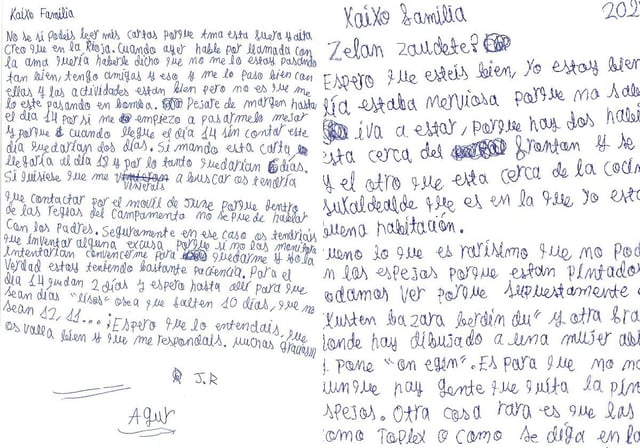 Kaixo Familia
No se si podeis leer mis cartas porque ama esta fuera y aita
Creo que en la Rioja. Cuando ayer hable por llamada con
la ama queria haberle dicho que no me lo estoy pasando
tan bien, tengo amigas y eso y me lo paso bien con
ellas y las actividades estan bien pero no es que me
lo este pasando en bomba. Dejare de margen hasta
el dia 14 por si me empiezo a pasarmelo mejor
y porque cuando llegue el dia 14 sin contar este
dia quedarian dos dias. Si mando esta carta
llegaria el dia 12 y por lo tanto quedarian 6 dias.
Si quisiese que me vinierais a buscar os tendria
que contactar por el movil de June porque dentro
de las reglas del campamento no se puede hablar
Con los padres. Seguramente en ese caso os tendriais
que inventar alguna excusa porque si no las monitoras
intentarian convencerme para quedarme y yo la
Verdad estoy teniendo bastante paciencia. Para el
dia 14 quedan 2 dias y espero hasta alli para que
sean dias "lisos" osea que falten 10 dias, que no
sean 12, 11... ¡Espero que lo entendais, que
os valla bien y que me respondais. muchas gracias!!!
J.R
Agur
Kaixo familia 202
Zelan zaudete?
Espero que esteis bien, yo estoy bien
lia estaba nerviosa porque no sab
iva a estar, porque hay dos habi
sta cerca del fronton y se
y el otro que esta cerca de la coci
sukaldealde que es en la que yo est
buena habitación.
ueno lo que es rarísimo que no pod
n los espejos porque estan pintado
odamos ver porque supuestamente
"Justen bazara berdin du" y otra fra
donde hay dibujado a una mujer
y pone "on egin". Es para que no
unque hay gente que quita la pin
spejos. Otra cosa rara es que las
omo Toplex o como se diga en la